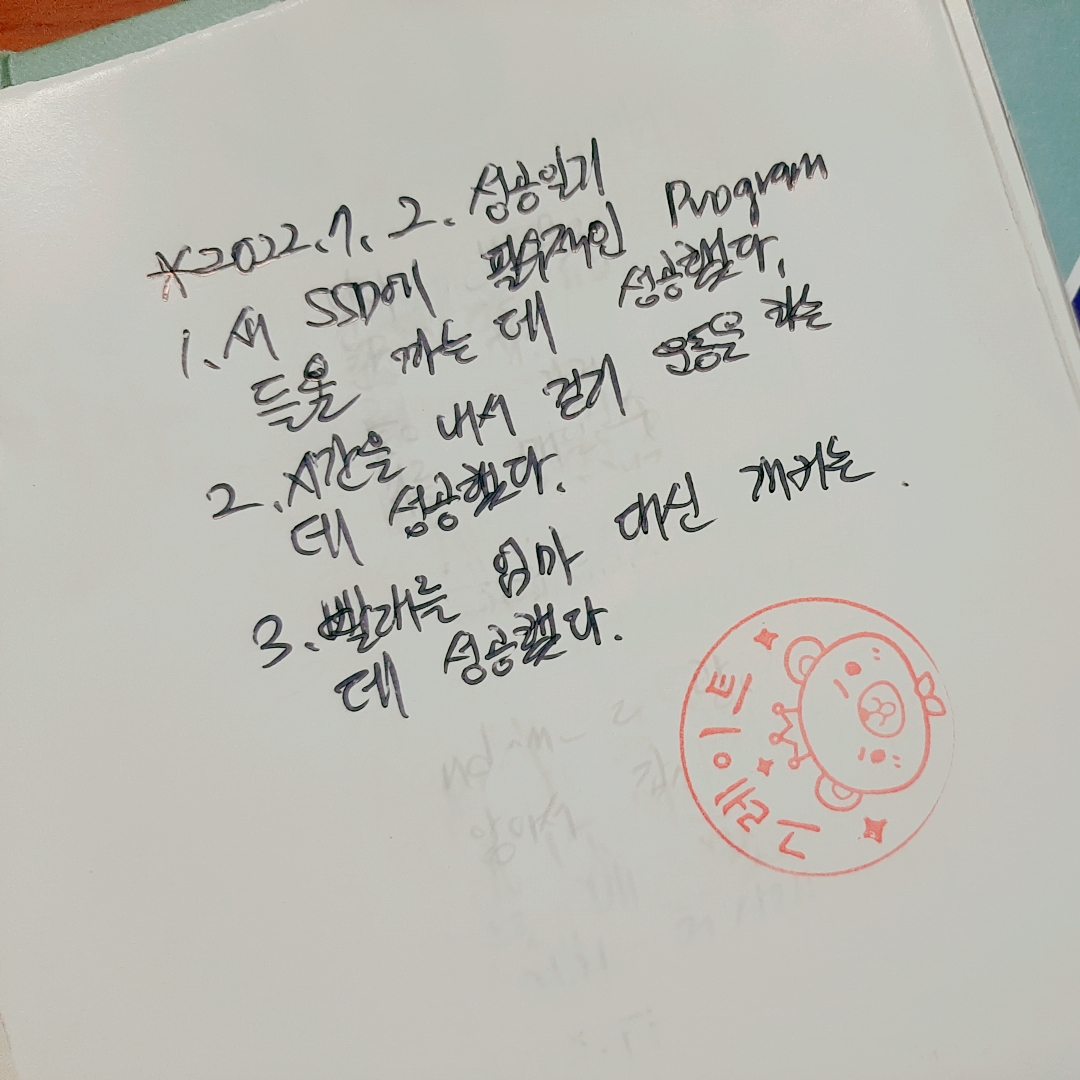 *2022.7.2. 성공일기
1. 새 SSD에 필수적인 Program
들을 까는 데 성공했다.
2. 시간을 내서 걷기 운동을 하는
데 성공했다.
3. 빨래를 엄마 대신 개키는
데 성공했다.
그레이트